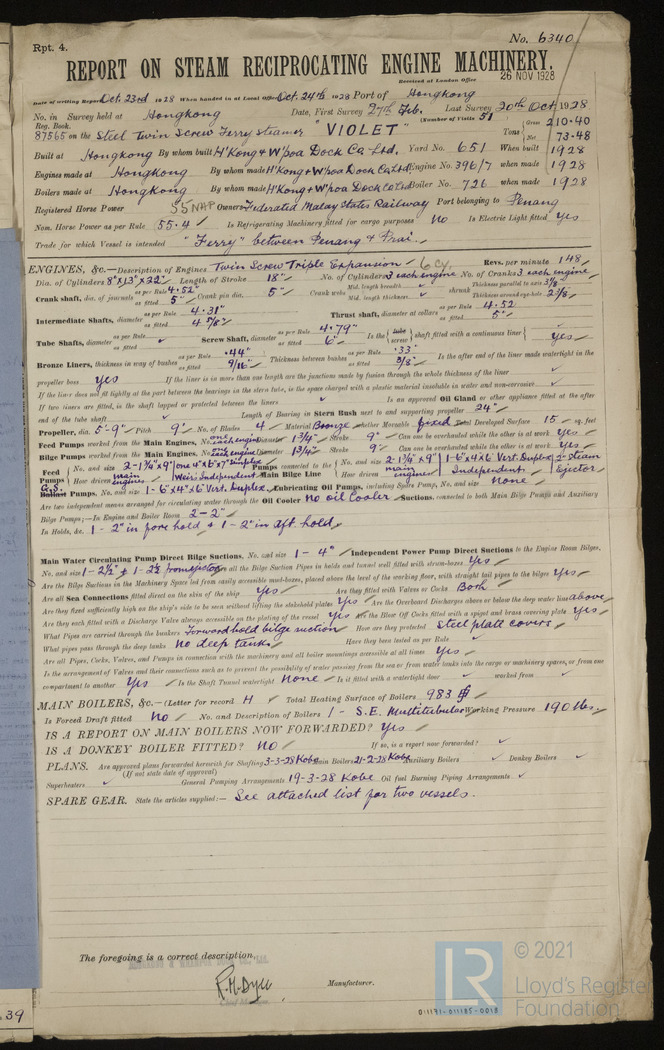 Rpt. 4.
No. 6340
REPORT ON STEAM RECIPROCATING ENGINE MACHINERY.
Received at London Office 26 NOV 1928
Date of writing Report Oct. 23rd 1928 When handed in at Local Office Oct. 24th 1928 Port of Hongkong
No. in Survey held at Hongkong Date, First Survey 27th Feb. Last Survey 20th Oct 1928
Reg. Book. (Number of Visits 51
87565 on the Steel Twin Screw Ferry steamer "VIOLET" Tons Gross 210.40 Net 73.48
Built at Hongkong By whom built H'Kong & W'poa Dock Co. Ltd. Yard No. 651 When built 1928
Engines made at Hongkong By whom made H'Kong & W'poa Dock Co Ltd Engine No. 396/7 when made 1928
Boilers made at Hongkong By whom made H'Kong & W'poa Dock Co Ltd Boiler No. 726 when made 1928
Registered Horse Power 55 NHP Owners Federated Malay States Railway Port belonging to Penang
Nom. Horse Power as per Rule 55.4 Is Refrigerating Machinery fitted for cargo purposes No Is Electric Light fitted Yes
Trade for which Vessel is intended "Ferry" between Penang & Prai.
ENGINES, &c.—Description of Engines Twin Screw Triple Expansion 6 Cy. Revs. per minute 148
Dia. of Cylinders 8" x 13" x 22" Length of Stroke 18" No. of Cylinders 3 each engine No. of Cranks 3 each engine
Crank shaft, dia. of journals as per Rule 4.52 as fitted 5" Crank pin dia. 5" Crank webs Mid. length breadth Mid. length thickness shrunk Thickness parallel to axis 3 1/8" Thickness around eye-hole 2 1/8"
Intermediate Shafts, diameter as per Rule 4.31" as fitted 4 5/8" Thrust shaft, diameter at collars as per Rule 4.52 as fitted 5"
Tube Shafts, diameter as per Rule as fitted Screw Shaft, diameter as per Rule 4.79" as fitted 6" Is the tube screw shaft fitted with a continuous liner Yes
Bronze Liners, thickness in way of bushes as per Rule .44" as fitted 9/16" Thickness between bushes as per Rule .33 as fitted 3/8" Is the after end of the liner made watertight in the
propeller boss Yes If the liner is in more than one length are the junctions made by fusion through the whole thickness of the liner
If the liner does not fit tightly at the part between the bearings in the stern tube, is the space charged with a plastic material insoluble in water and non-corrosive
If two liners are fitted, is the shaft lapped or protected between the liners Is an approved Oil Gland or other appliance fitted at the after
end of the tube shaft Length of Bearing in Stern Bush next to and supporting propeller 24"
Propeller, dia. 5'-9" Pitch 9' No. of Blades 4 Material Bronze whether Moveable fixed Total Developed Surface 15 sq. feet
Feed Pumps worked from the Main Engines, No. one each engine Diameter 1 3/4" Stroke 9" Can one be overhauled while the other is at work Yes
Bilge Pumps worked from the Main Engines, No. one each engine Diameter 1 3/4" Stroke 9" Can one be overhauled while the other is at work Yes
Feed Pumps No. and size 2-1 3/4" x 9" one 4" x 6" x 7" Duplex How driven main engines Weir Independent Pumps connected to the Main Bilge Line No. and size 2-1 3/4" x 9" 1-6" x 4" x 6 Vert. Duplex 2-Steam How driven main engines Independent Ejector
G.S. Ballast Pumps, No. and size 1-6" x 4" x 6" Vert. Duplex Lubricating Oil Pumps, including Spare Pump, No. and size None
Are two independent means arranged for circulating water through the Oil Cooler No oil cooler Suctions, connected to both Main Bilge Pumps and Auxiliary
Bilge Pumps;—In Engine and Boiler Room 2-2"
In Holds, &c. 1-2" in fore hold & 1-2" in aft. hold
Main Water Circulating Pump Direct Bilge Suctions, No. and size 1-4" Independent Power Pump Direct Suctions to the Engine Room Bilges,
No. and size 1-2 1/2" & 1-2 1/2 from ejector Are all the Bilge Suction Pipes in holds and tunnel well fitted with strum-boxes Yes
Are the Bilge Suctions in the Machinery Space led from easily accessible mud-boxes, placed above the level of the working floor, with straight tail pipes to the bilges Yes
Are all Sea Connections fitted direct on the skin of the ship Yes Are they fitted with Valves or Cocks Both
Are they fixed sufficiently high on the ship's side to be seen without lifting the stokehold plates Yes Are the Overboard Discharges above or below the deep water line above
Are they each fitted with a Discharge Valve always accessible on the plating of the vessel Yes Are the Blow Off Cocks fitted with a spigot and brass covering plate Yes
What Pipes are carried through the bunkers Forward hold bilge suction How are they protected Steel plate covers
What pipes pass through the deep tanks No deep tank Have they been tested as per Rule
Are all Pipes, Cocks, Valves, and Pumps in connection with the machinery and all boiler mountings accessible at all times Yes
Is the arrangement of Valves and their connections such as to prevent the possibility of water passing from the sea or from water tanks into the cargo or machinery spaces, or from one
compartment to another Yes Is the Shaft Tunnel watertight None Is it fitted with a watertight door worked from
MAIN BOILERS, &c.—(Letter for record H Total Heating Surface of Boilers 983
Is Forced Draft fitted No No. and Description of Boilers 1 - S.E. Multitubular Working Pressure 190 lbs.
IS A REPORT ON MAIN BOILERS NOW FORWARDED? Yes
IS A DONKEY BOILER FITTED? No If so, is a report now forwarded?
PLANS. Are approved plans forwarded herewith for Shafting 3-3-28 Kobe Main Boilers 21-2-28 Kobe Auxiliary Boilers Donkey Boilers
(If not state date of approval)
Superheaters General Pumping Arrangements 19-3-28 Kobe Oil fuel Burning Piping Arrangements
SPARE GEAR. State the articles supplied:— See attached list for two vessels.
The foregoing is a correct description,
Manufacturer.
© 2021
LR Lloyd's Register
Foundation
011171-011185-0018
.39